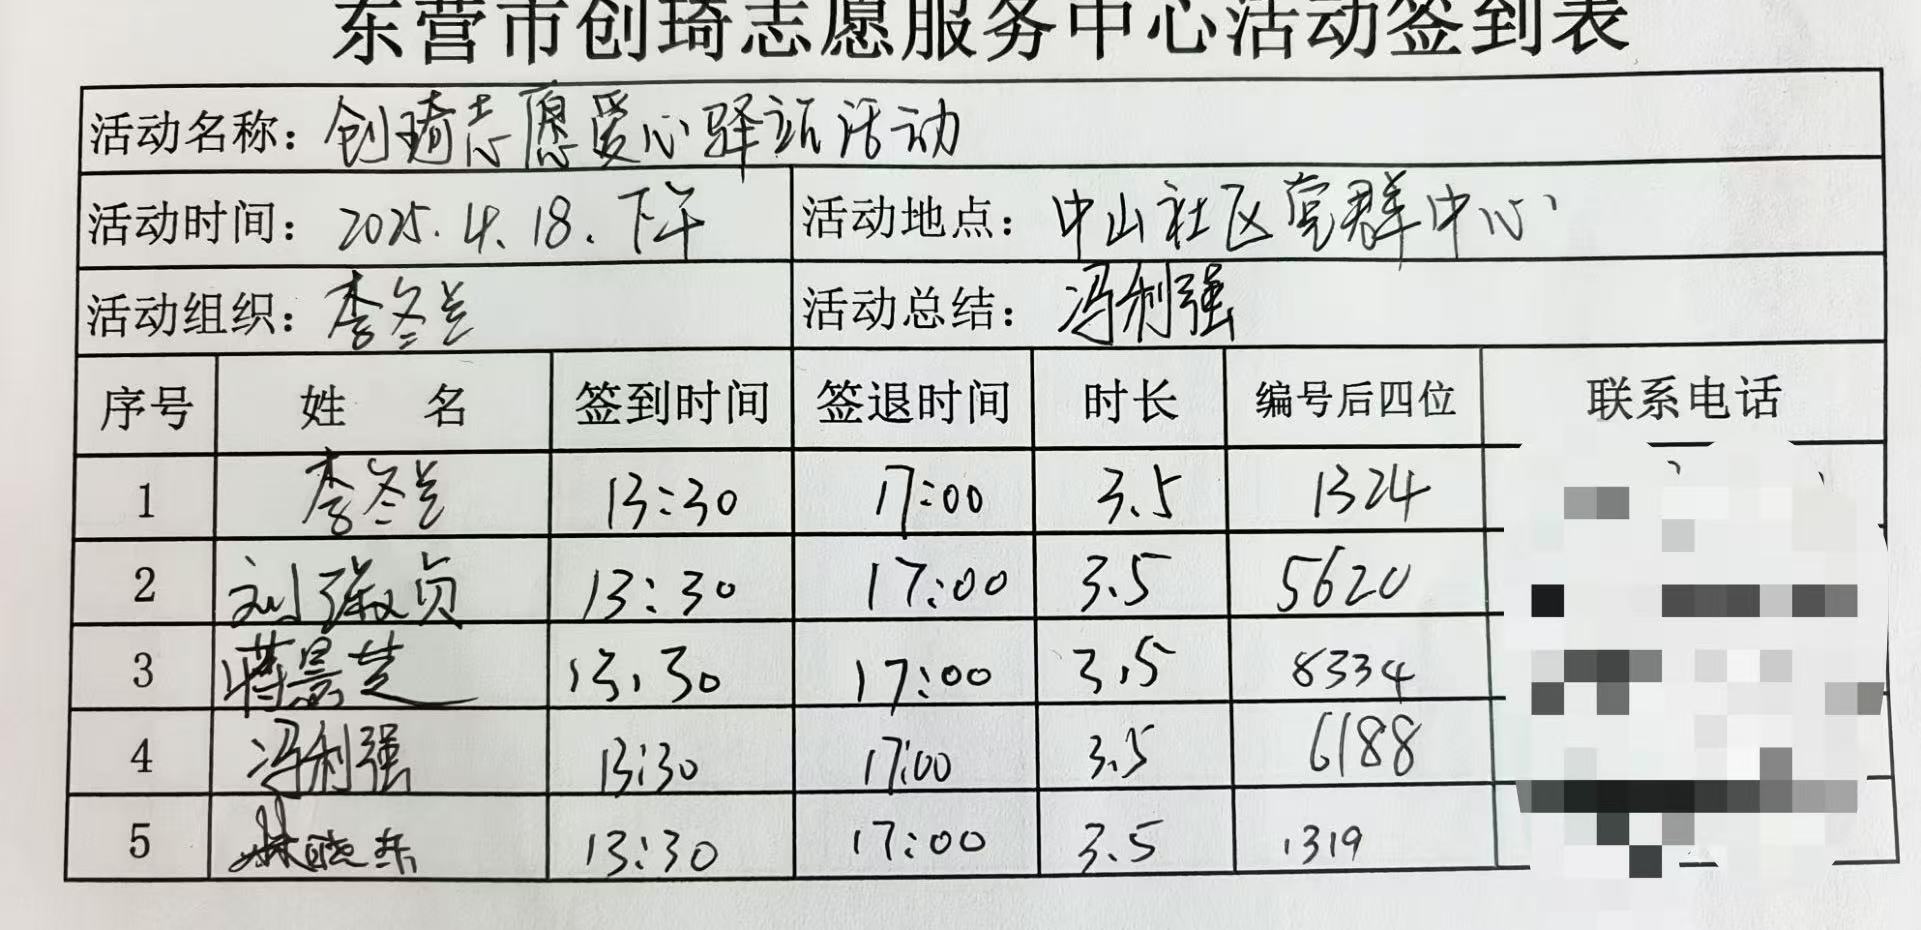 东营市创琦志愿服务中心活动签到表
活动名称：创琦志愿爱心驿站活动
活动时间：2025.4.18.下午 活动地点：中山社区党群中心
活动组织：李冬兰 活动总结：冯利强
序号 姓 名 签到时间 签退时间 时长 编号后四位 联系电话
1 李冬兰 13:30 17:00 3.5 1324
2 刘淑贞 13:30 17:00 3.5 5620
3 蒋景芝 13:30 17:00 3.5 8334
4 冯利强 13:30 17:00 3.5 6188
5 林晓东 13:30 17:00 3.5 1319